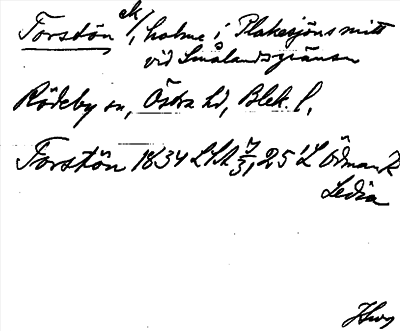 Torstön ek/, holme i Plakesjöns mitt
vid Smålandsgränsen
Rödeby sn, Östra hd, Blek. l,
Torstön 1834 LSA 7/3, 25 L Ödmark
Ledia